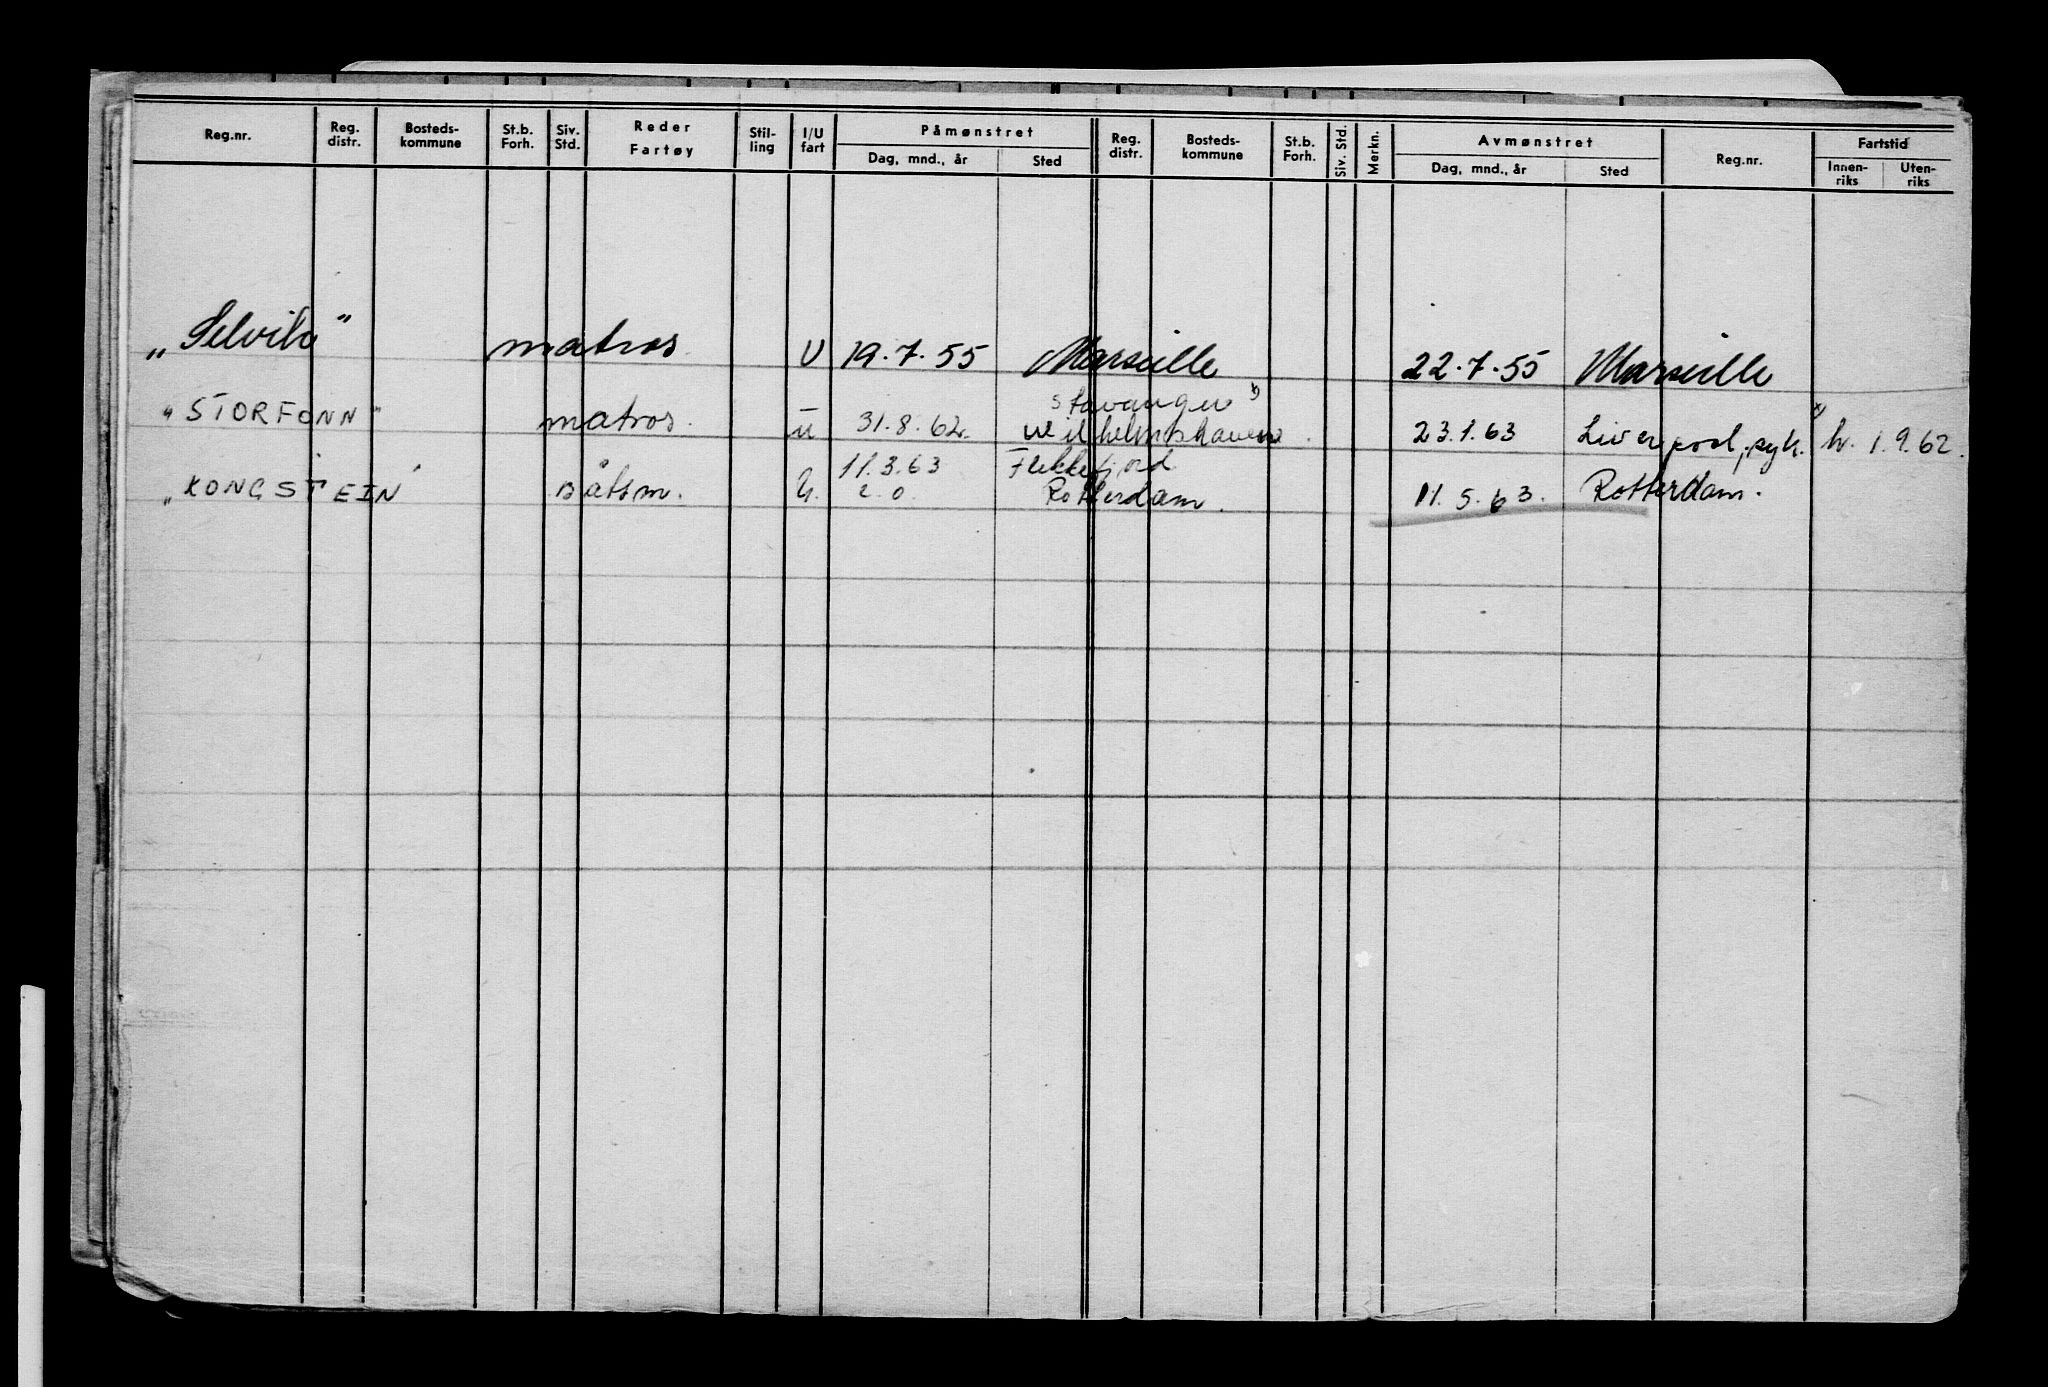 Reg.nr. Reg. distr. Bosteds- kommune St.b. Forh. Siv. Std. Reder Fartøy Stil- ling I/U fart Påmønstret Dag, mnd., år Sted Reg. distr. Bosteds- kommune St.b. Forh. Siv. Std. Merkn. Avmønstret Dag, mnd., år Sted Reg.nr. Fartstid Innen- riks Uten- riks
matros U 19.7.55 Marseille 22.7.55 Marseille
Stavanger x)
"STORFONN" matros. u 31.8.62. Wilhelmshaven. 23.1.63 Liverpool, syk. x) h. 1.9.62.
11.3.63 Flekkefjord
"KONGSTEIN" Båtsm. U. 2.0. Rotterdam. 11.5.63. Rotterdam.